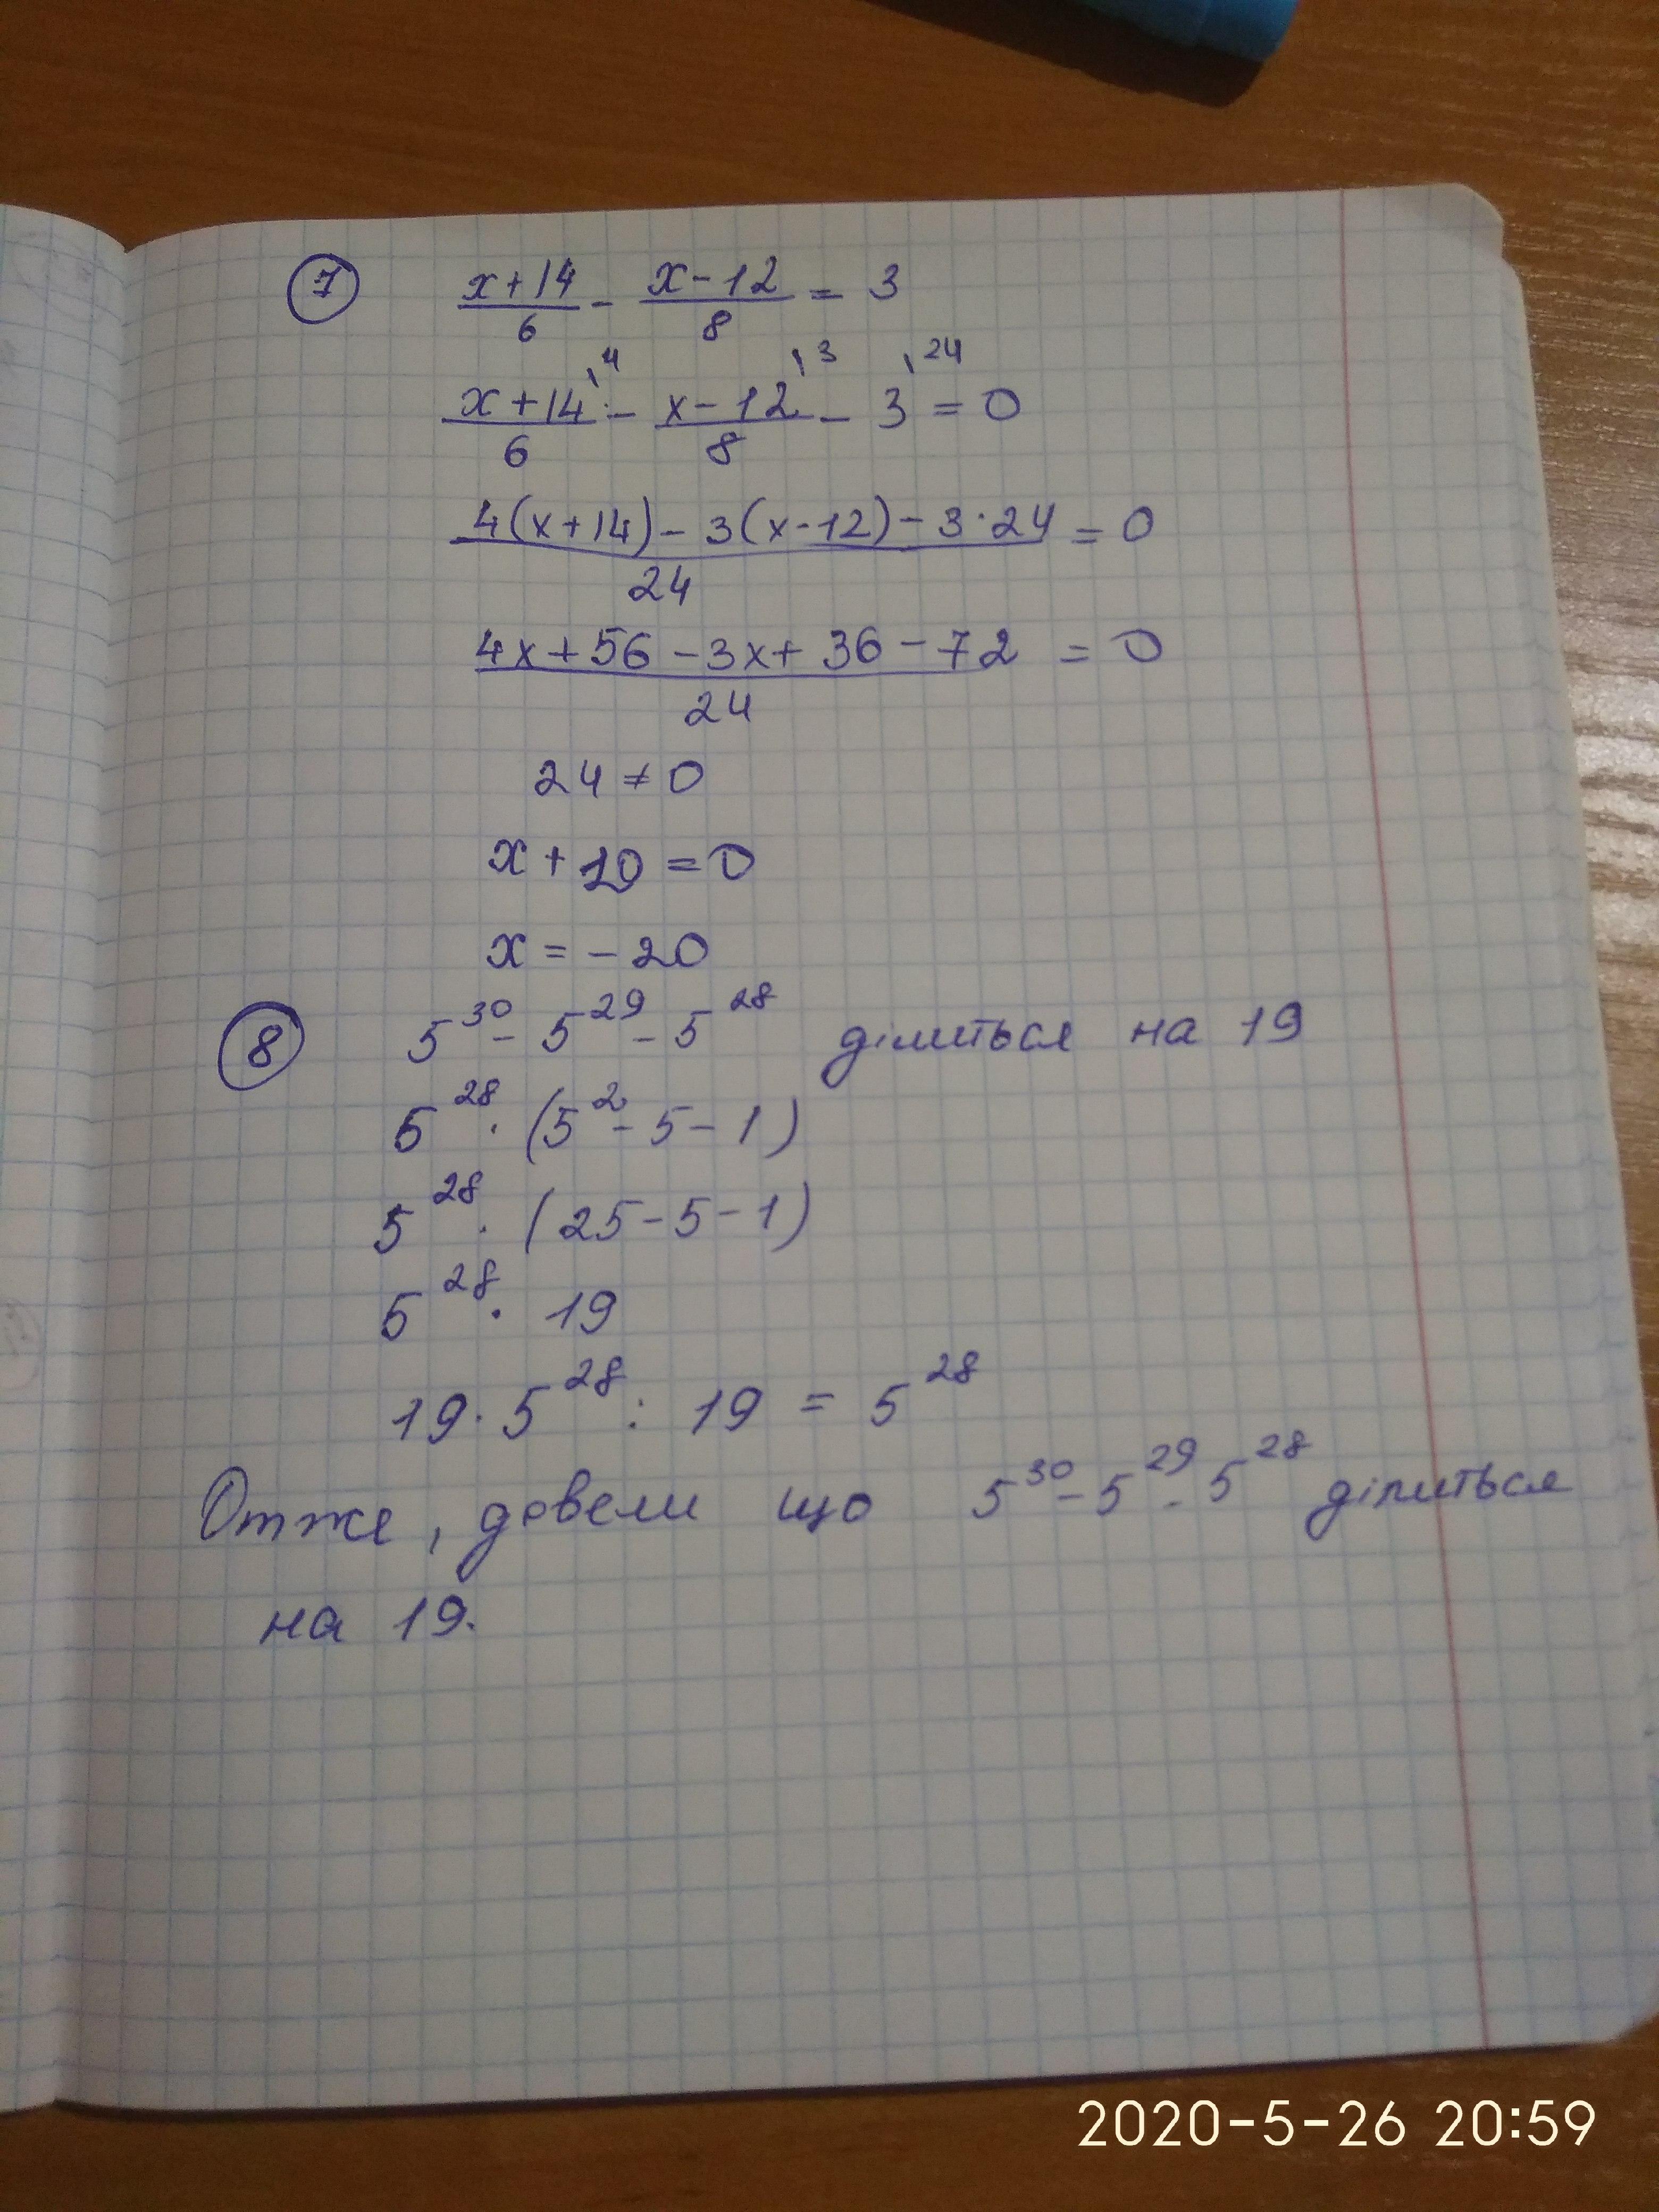 7 x+14/6 - x-12/8 = 3
x+14/6 \4 - x-12/8 \3 - 3 \24 = 0
4(x+14) - 3(x-12) - 3·24/24 = 0
4x+56-3x+36-72/24 = 0
24 ≠ 0
x+10=0
x = -20
8 5^30 - 5^29 - 5^28 ділиться на 19
5^28 · (5^2 - 5 - 1)
5^28 · (25-5-1)
5^28 · 19
19·5^28 : 19 = 5^28
Отже, довели що 5^30 - 5^29 - 5^28 ділиться
на 19.
2020-5-26 20:59